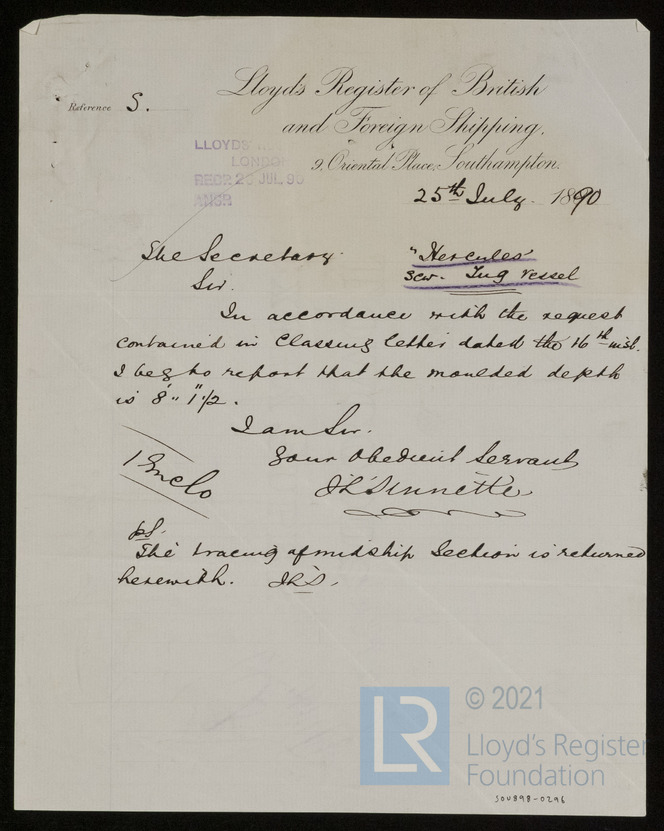 Lloyds Register of British
and Foreign Shipping.
Reference S.
9, Oriental Place, Southampton.
LLOYDS
LONDON
RECD 26 JUL. 90
ANSR
25th July. 1890
The Secretary.
Sir.
"Hercules"
scw. Tug Vessel
In accordance with the request
contained in Classing letter dated the 16th inst.
I beg to report that the moulded depth
is 8' " 1" 1/2.
I am Sir.
Your Obedient Servant
1 Enclo
ps.
The tracing of midship Section is returned
herewith.
© 2021
LR
Lloyd's Register
Foundation
SOU898-0296